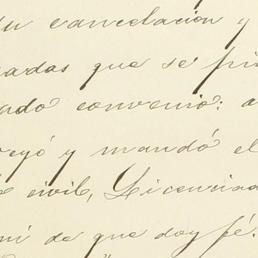 su cancelacion y
adas que se pi
ado convenio: a
veyó y mandó el
civil, Licencia
mi de que doy fé.